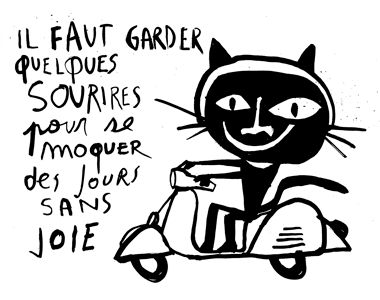 IL FAUT GARDER
QUELQUES
SOURIRES
pour se
MOQUER
des Jours
SANS
JOIE